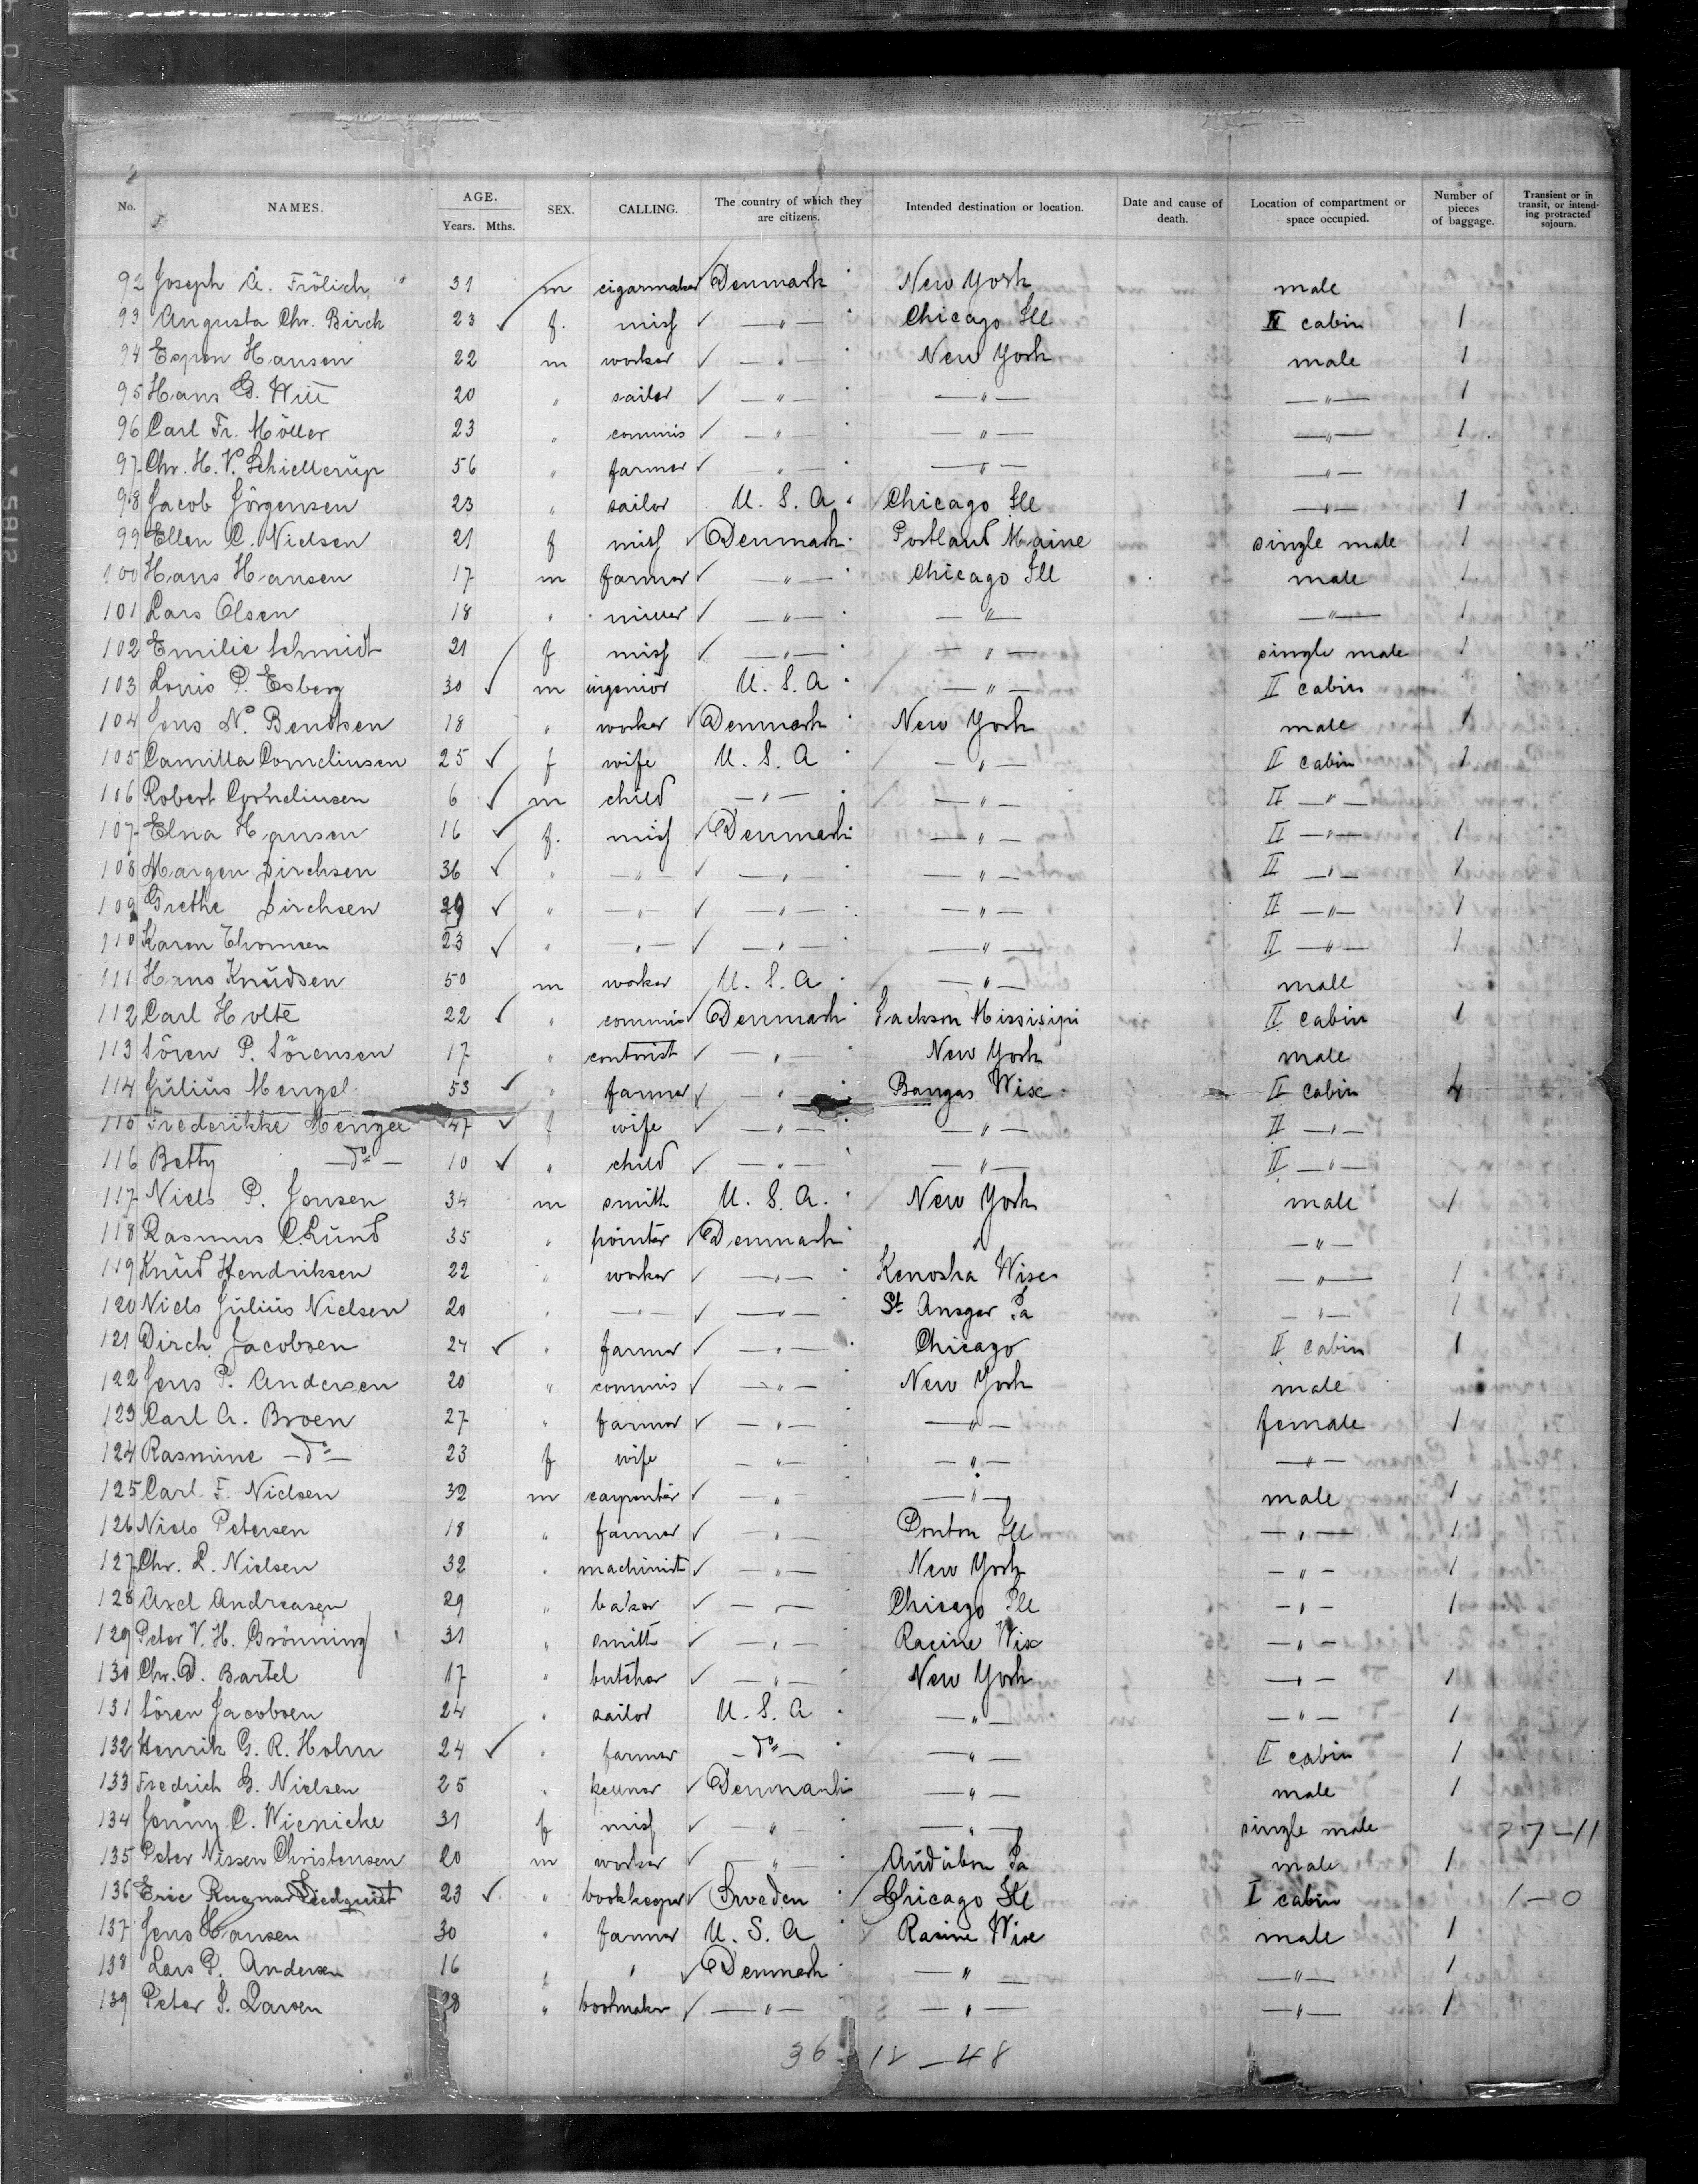 No. NAMES. AGE. Years. Mths. SEX. CALLING. The country of which they are citizens. Intended destination or location. Date and cause of death. Location of compartment or space occupied. Number of pieces of baggage. Transient or in transit, or intending protracted sojourn.
92 Joseph A. Frölich 31 m cigarmaker Denmark New York male
93 Augusta Chr. Birch 23 ✓ f. miss ✓ —"— Chicago Ill II cabin 1
94 Espen Hansen 22 m worker ✓ —"— New York male 1
95 Hans G. Witt 20 " sailor ✓ —"— —"— —"— 1
96 Carl Fr. Möller 23 " commis ✓ —"— —"— —"— 1
97 Chr. H. V. Schiellerup 56 " farmer ✓ —"— —"— —"—
98 Jacob Jörgensen 23 " sailor U. S. A. Chicago Ill —"— 1
99 Ellen C. Nielsen 21 f miss ✓ Denmark Portland Maine single male 1
100 Hans Hansen 17 m farmer ✓ —"— Chicago Ill male 1
101 Lars Olsen 18 " miller ✓ —"— —"— —"— 1
102 Emilie Schmidt 21 f miss ✓ —"— —"— single male 1
103 Louis P. Esberg 30 ✓ m ingeniör U. S. A —"— II cabin
104 Jens N. Bendtsen 18 " worker ✓ Denmark New York male 1
105 Camilla Corneliusen 25 ✓ f wife U. S. A —"— II cabin 1
106 Robert Corneliusen 6 ✓ m child —"— —"— II —"—
107 Elna Hansen 16 ✓ f. miss ✓ Denmark —"— II —"— 1
108 Margen Dirchsen 36 ✓ " —"— ✓ —"— —"— II —"— 1
109 Grethe Dirchsen 29 ✓ " —"— ✓ —"— —"— II —"— 1
110 Karen Thomsen 23 ✓ " —"— ✓ —"— —"— II —"— 1
111 Hans Knudsen 50 m worker U. S. A —"— male
112 Carl Holte 22 ✓ " commis ✓ Denmark Jackson Missisipi II cabin 1
113 Sören P. Sörensen 17 " contorist ✓ —"— New York male
114 Julius Menzel 53 ✓ " farmer ✓ —"— Wisc II cabin 4
115 Frederikke Menzel 47 ✓ f wife ✓ —"— —"— II —"—
116 Betty —do— 10 ✓ " child ✓ —"— —"— II —"—
117 Niels P. Jensen 34 m smith U. S. A. New York male 1
118 Rasmus C. Lund 35 " pointer ✓ Denmark " —"—
119 Knud Hendriksen 22 " worker ✓ —"— Kenosha Wisc —"— 1
120 Niels Julius Nielsen 20 " —"— ✓ —"— St. Ansgar Ia —"— 1
121 Dirch Jacobsen 24 ✓ " farmer ✓ —"— Chicago II cabin 1
122 Jens P. Andersen 20 " commis ✓ —"— New York male
123 Carl A. Broen 27 " farmer ✓ —"— —"— female 1
124 Rasmine —do— 23 f wife —"— —"— —"—
125 Carl F. Nielsen 32 m carpenter ✓ —"— —"— male 1
126 Niels Petersen 18 " farmer ✓ —"— Ill —"— 1
127 Chr. L. Nielsen 32 " machinist ✓ —"— New York —"— 1
128 Axel Andreasen 29 " baker ✓ —"— Chicago Ill —"— 1
129 Peter V. H. Grönning 31 " smith ✓ —"— Racine Wisc —"—
130 Chr. D. Bartel 17 " butcher ✓ —"— New York —"— 1
131 Sören Jacobsen 24 " sailor U. S. A —"— —"— 1
132 Henrik G. R. Holm 24 ✓ " farmer —do— —"— II cabin 1
133 Fredrich G. Nielsen 25 " kellner ✓ Denmark —"— male 1
134 Jenny C. Wienicke 31 f miss ✓ —"— —"— single male 27—11
135 Peter Nissen Christensen 20 m worker ✓ —"— Audubon Ia male 1
136 Eric Ragnar Liedquist 23 ✓ " bookkeeper ✓ Sweden Chicago Ill I cabin 1—0
137 Jens Hansen 30 " farmer U. S. A Racine Wisc male 1
138 Lars P. Andersen 16 " " ✓ Denmark —"— —"— 1
139 Peter S. Larsen 28 " bootmaker ✓ —"— —"— —"— 1
36 12—48